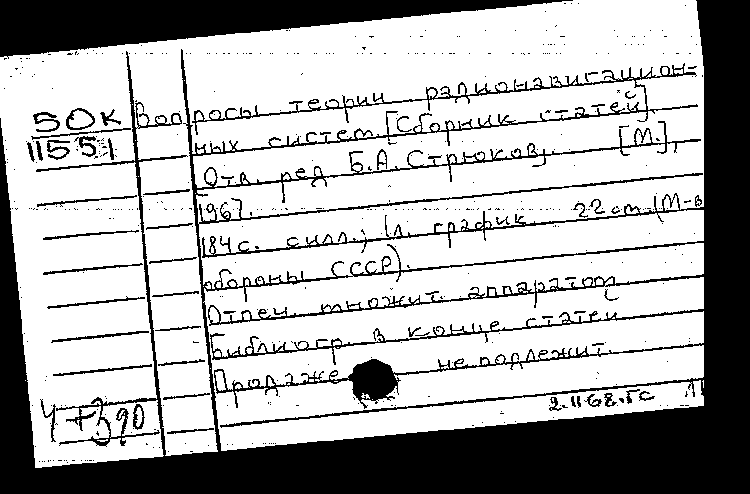 50к
11551
Вопросы теории радионавигацион-
ных систем [Сборник статей].
[Отв. ред Б.А. Стрюков]. [М.],
1967.
184 с. с илл.; 1 л. график 22 см. (М-во
обороны СССР).
Отпеч. множит. аппаратом
Библиогр. в конце статей
Продаже не подлежит.
4+390